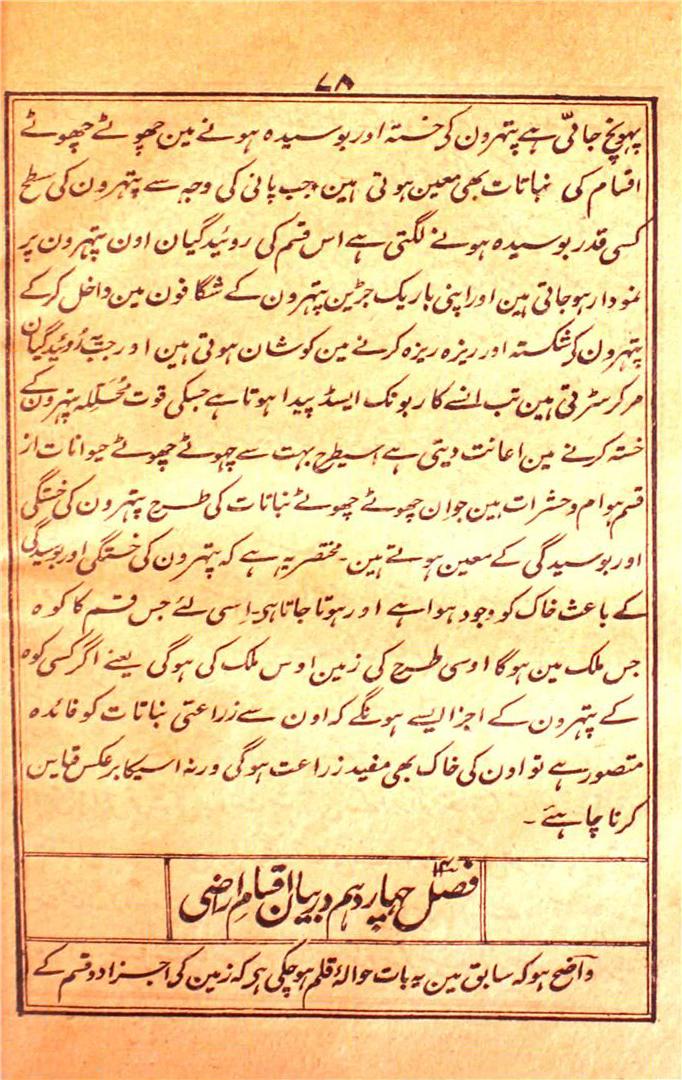 ۷۸
پہونچ جاتی ہے پتہرون کی خستہ اور بوسیدہ ہونے مین چھوٹے چھوٹے
اقسام کی نباتات بھی معین ہوتی ہین جب پانی کی وجہ سے پتہرون کی سطح
کسی قدر بوسیدہ ہونے لگتی ہے اس قسم کی روئیدگیان اون پتہرون پر
نمودار ہو جاتی ہین اور اپنی باریک جڑین پتہرون کے شگافون مین داخل کر کے
پتہرون کو شکستہ اور ریزہ ریزہ کرنے مین کوشان ہوتی ہین اور جب یہ روئیدگیان
مر کر سڑتی ہین تب انسے کاربونک ایسڈ پیدا ہوتا ہے جسکی قوت محللہ پتہرون کے
خستہ کرنے مین اعانت دیتی ہے اسیطرح بہت سے چہوٹے چھوٹے حیوانات از
قسم ہوام و حشرات ہین جو ان چھوٹے چھوٹے نباتات کی طرح پتہرون کی خستگی
اور بوسیدگی کے معین ہوتے ہین۔ مختصر یہ ہے کہ پتہرون کی خستگی اور بوسیدگی
کے باعث خاک کو وجود ہوا ہے اور ہوتا جاتا ہی۔ اسی لئے جس قسم کا کوہ
جس ملک مین ہوگا اوسی طرح کی زمین اوس ملک کی ہوگی یعنے اگر کسی کوہ
کے پتہرون کے اجزا ایسے ہونگے کہ اون سے زراعتی نباتات کو فائدہ
متصور ہے تو اون کی خاک بھی مفید زراعت ہوگی ورنہ اسیکا برعکس قیاس
کرنا چاہئے۔
فصل ۱۴ چہاردہم در بیان اقسام اراضی
واضح ہو کہ سابق مین یہ بات حوالۂ قلم ہو چکی ہی کہ زمین کی اجزا دو قسم کے